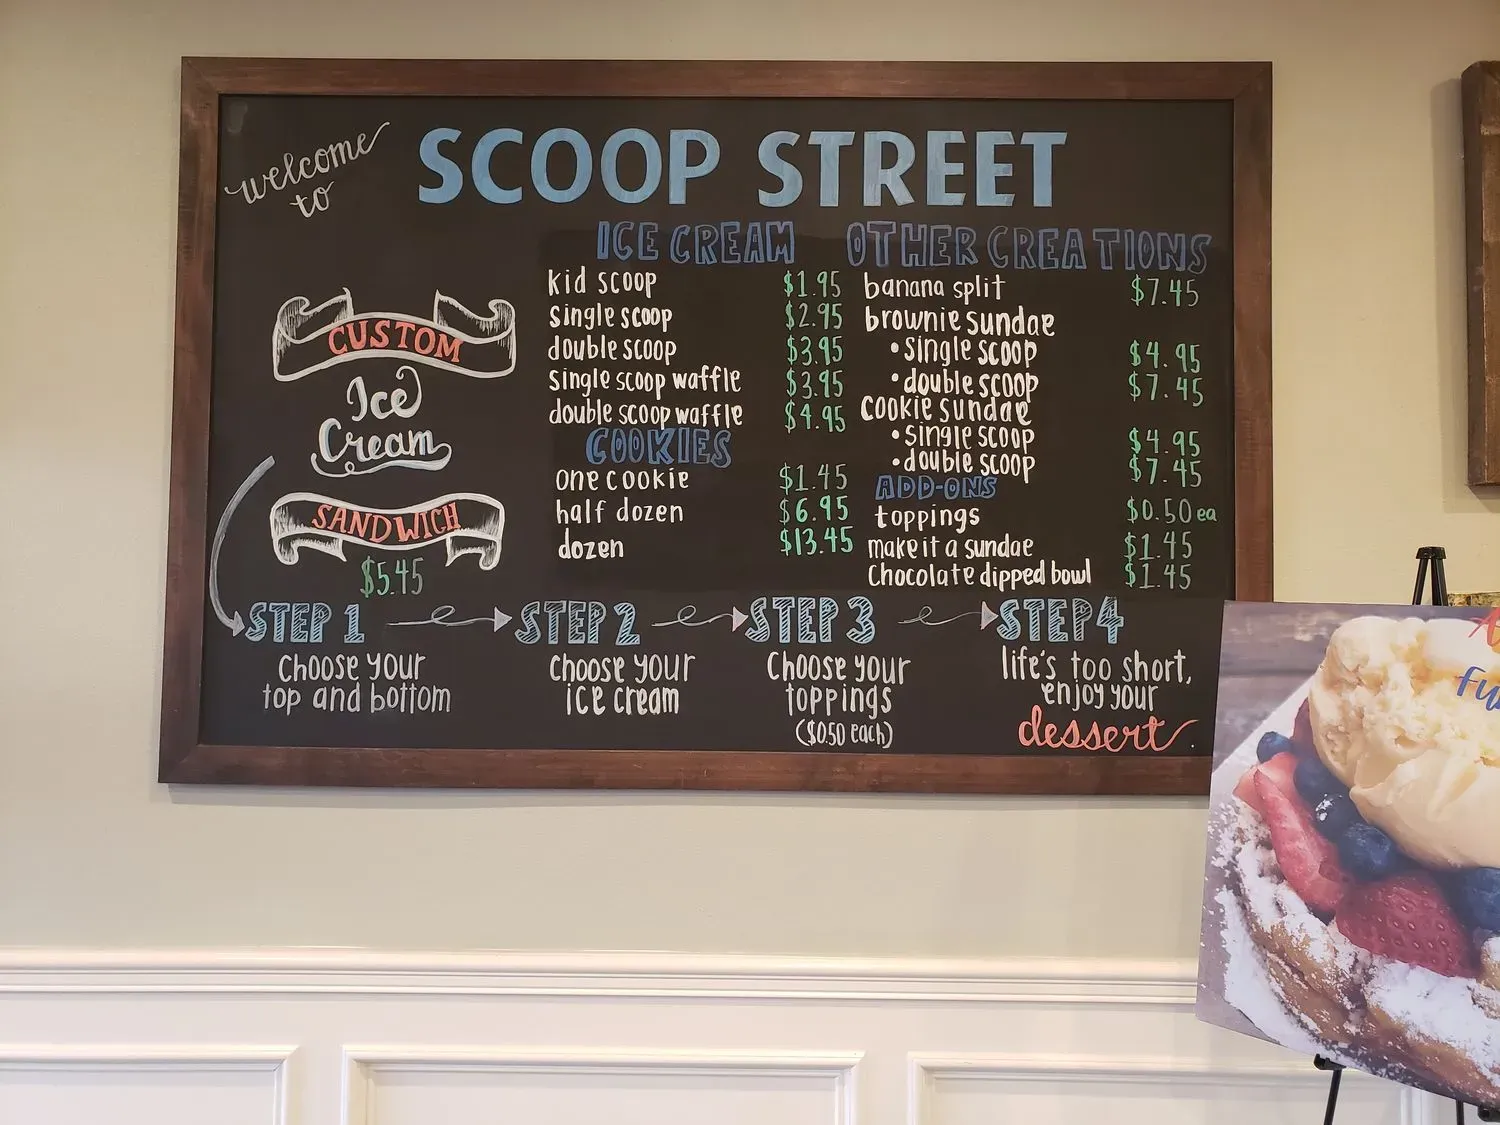 welcome
to
SCOOP STREET
CUSTOM
Ice
Cream
SANDWICH
$5.45
ICE CREAM
kid scoop $1.95
single scoop $2.95
double scoop $3.95
single scoop waffle $3.95
double scoop waffle $4.95
COOKIES
one cookie $1.45
half dozen $6.95
dozen $13.45
OTHER CREATIONS
banana split $7.45
brownie sundae
• single scoop $4.95
• double scoop $7.45
cookie sundae
• single scoop $4.95
• double scoop $7.45
ADD-ONS
toppings $0.50 ea
make it a sundae $1.45
chocolate dipped bowl $1.45
STEP 1
choose your
top and bottom
STEP 2
choose your
ice cream
STEP 3
choose your
toppings
($0.50 each)
STEP 4
life's too short,
enjoy your
dessert.